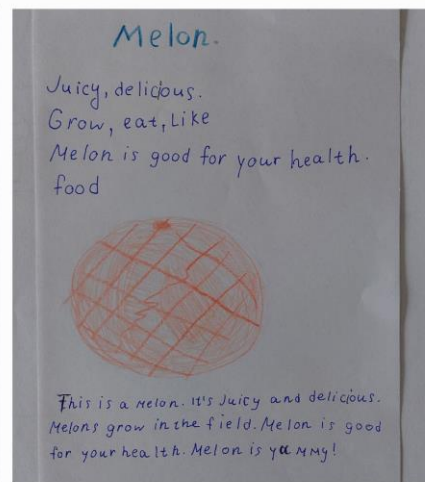 Melon.
Juicy, delicious.
Grow, eat, Like
Melon is good for your health.
food
This is a melon. It's Juicy and delicious.
Melons grow in the field. Melon is good
for your health. Melon is yummy!